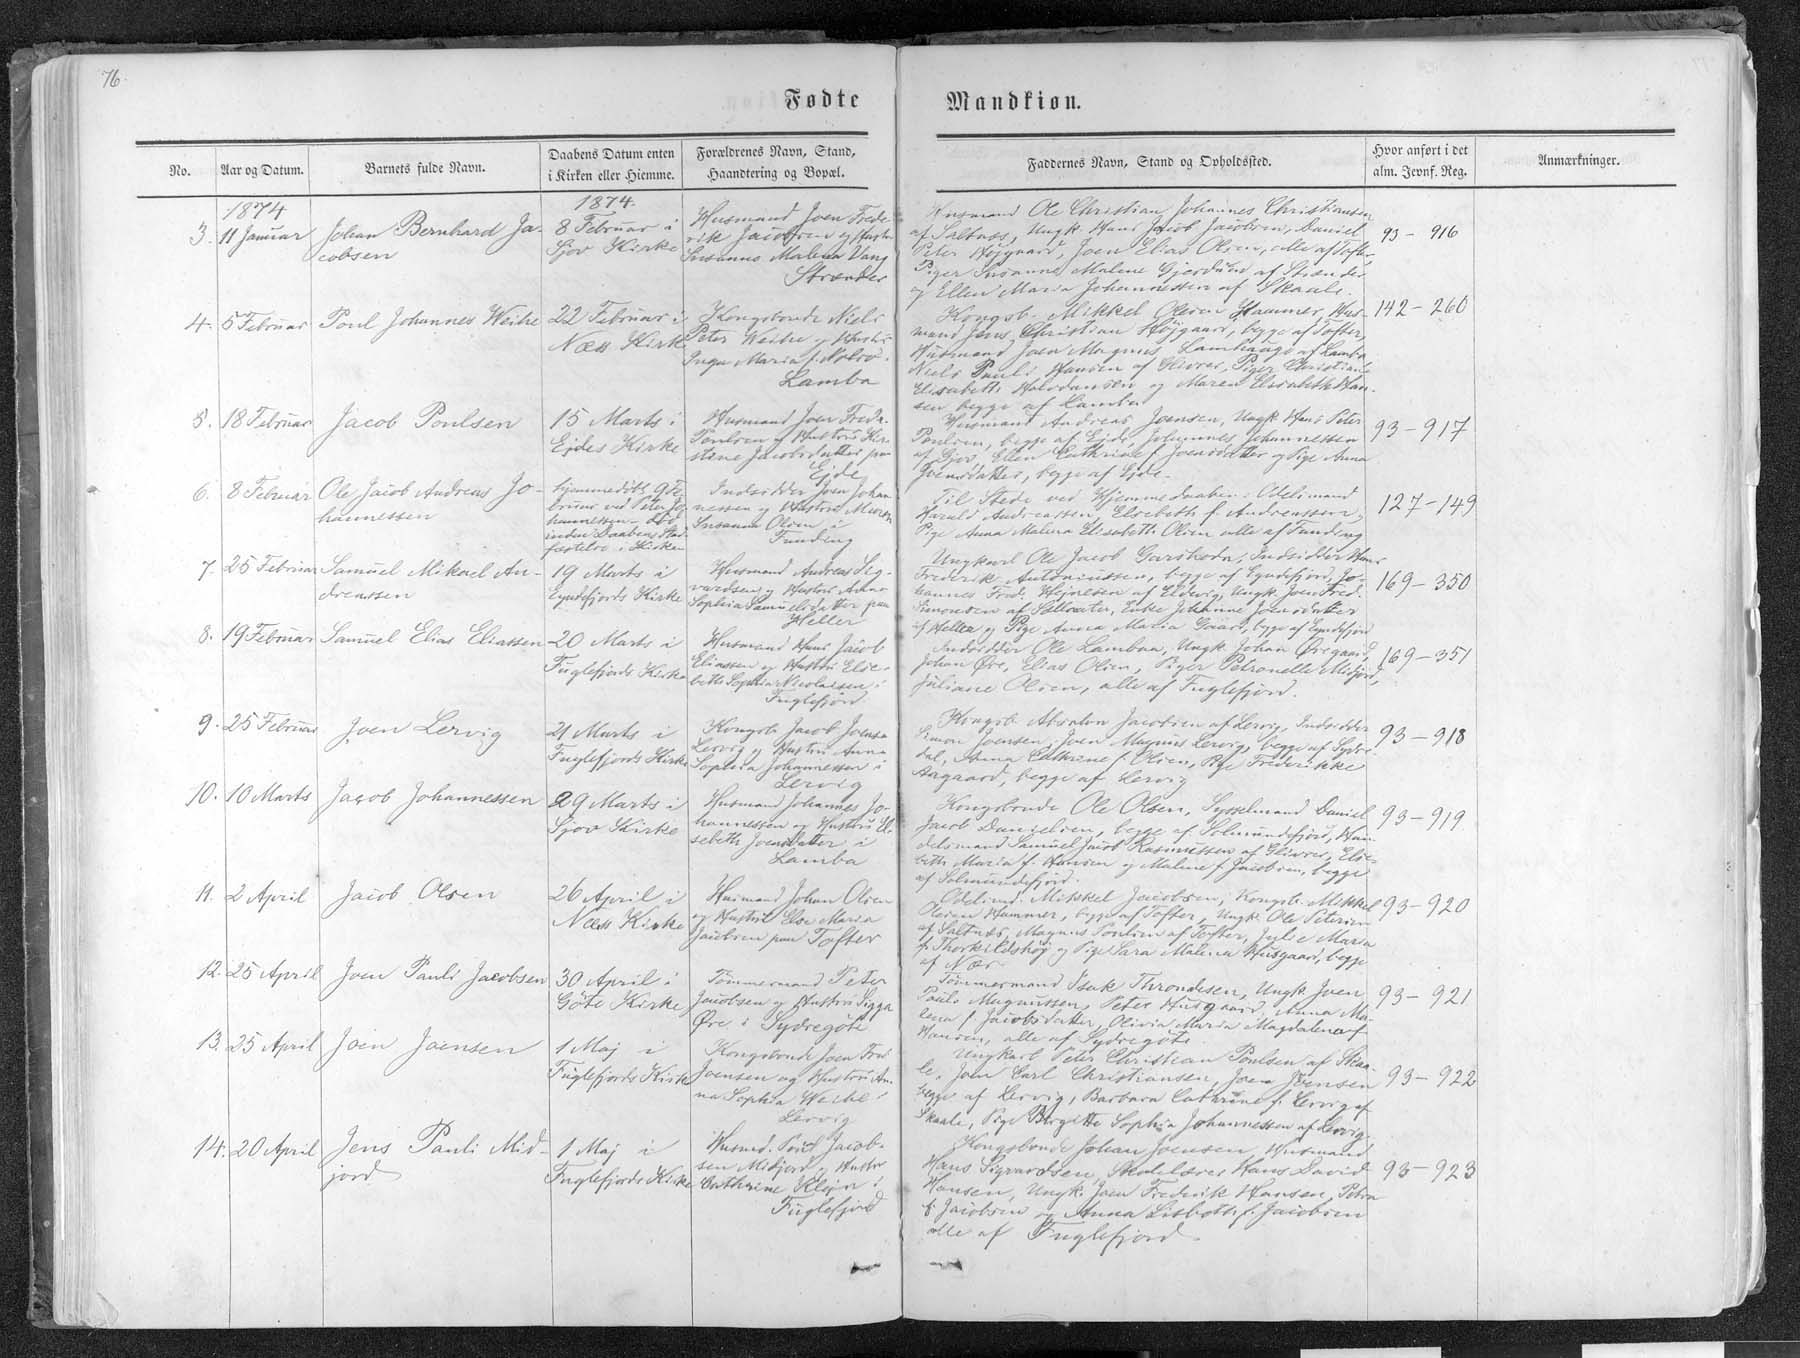 76.
Fødte
Mandkiøn.
No.
Aar og Datum.
Barnets fulde Navn.
Daabens Datum enten
i Kirken eller Hiemme.
Forældrenes Navn, Stand,
Haandtering og Bopæl.
Faddernes Navn, Stand og Opholdssted.
Hvor anført i det
alm. Jevnf. Reg.
Anmærkninger.
1874
1874.
3. 11 Januar
Johan Bernhard Ja-
cobsen
8 Februar i
Sjov Kirke
Husmand Joen Frede-
rik Jacobsen og Hustru
Susanne Malena Vang
Strænder
Husmand Ole Christian Johannes Christiansen
af Saltnæs, Ungk. Hans Jacob Jacobsen, Daniel
Peter Højgaard, Joen Elias Olsen, alle af Tofte,
Piger Susanne Malene Gjerdum af Strænder
og Ellen Maria Johannessen af Skaale.
93 - 916
4. 5 Februar
Poul Johannes Weihe
22 Februar i
Næs Kirke
Kongsbonde Niels
Peter Weihe og Hustru
Inga Maria f.
Lamba
Kongsb. Mikkel Olesen Hammer, Hus-
mand Jens Christian Højgaard, begge af Tofter,
Husmand Joen Magnus Lamhauge af Lamba,
Niels Pauli Hansen af Glivrer, Piger Christiane
Elisabeth Halvdansen og Maren Elisabeth Han-
sen begge af Lamba
142 - 260
5. 18 Februar
Jacob Poulsen
15 Marts i
Ejdes Kirke
Husmand Joen Fredr.
Poulsen og Hustru Kir-
stine Jacobsdatter paa
Ejde
Husmand Andreas Joensen, Ungk. Hans Peter
Poulsen, begge af Ejde, Johannes Johannessen
af Gjov, Ellen Cathrine f. Joensdatter og Pige Anna
Joensdatter, begge af Ejde.
93 - 917
6. 8 Februar
Ole Jacob Andreas Jo-
hannessen
hjemmedøbt 9 Fe-
bruar ved Peter Jo-
hannessen - død
inden Daabens Stad-
fæstelse i Kirken
Indsidder Joen Johan-
nessen og Hustru Maren
Susanna Olsen i
Funding
Til Stede ved Hjemmedaaben: Odelsmand
Harald Andreassen, Elsebeth f. Andreassen,
Pige Anna Malena Elisabeth Olsen alle af Funding
127 - 149
7. 25 Februar
Samuel Mikael An-
dreassen
19 Marts i
Eyndefjords Kirke
Husmand Andreas Sig-
vardsen og Hustru Anna
Sophia Samuelsdatter paa
Heller
Ungkarl Ole Jacob Garshodn, Indsidder Hans
Frederik Antoniussen, begge af Eyndefjord, Jo-
hannes Fred. Hejnesen af Eldevig, Ungk. Joen Fred.
Simonsen af Selletræ, Enke Johanne Joensdatter
af Heller og Pige Anna Maria Gaard, begge af Eyndefjord
169 - 350
8. 19 Februar
Samuel Elias Eliassen
20 Marts i
Fuglefjords Kirke
Husmand Hans Jacob
Eliassen og Hustru Else-
beth Sophia Nicolaisen i
Fuglefjord
Indsidder Ole Lambaa, Ungk. Johan Øregaard,
Johan Øre, Elias Olsen, Piger Petronelle Midjord,
Juliane Olsen, alle af Fuglefjord.
169 - 351
9. 25 Februar
Joen Lervig
21 Marts i
Fuglefjords Kirke
Kongsb. Jacob Joensen
Lervig og Hustru Anna
Sophia Johannessen i
Lervig
Kongsb. Absalon Jacobsen af Lervig, Indsidder
Simon Joensen, Joen Magnus Lervig, begge af Sydre-
dal, Anna Cathrine f. Olsen, Pige Frederikke
Aagaard, begge af Lervig
93 - 918
10. 10 Marts
Jacob Johannessen
29 Marts i
Sjov Kirke
Husmand Johannes Jo-
hannessen og Hustru El-
sebeth Joensdatter i
Lamba
Kongsbonde Ole Olsen, Sysselmand Daniel
Jacob Danielsen, begge af Solmundefjord, Han-
delsmand Samuel Jacob Rasmussen af Glivrer, Else-
beth Maria f. Hansen og Malene f. Jacobsen, begge
af Solmundefjord.
93 - 919
11. 2 April
Jacob Olsen
26 April i
Næs Kirke
Husmand Johan Olsen
og Hustru Else Maria
Jacobsen paa Tofter
Odelsmd. Mikkel Jacobsen, Kongsb. Mikkel
Olesen Hammer, begge af Tofter, Ungk. Ole Petersen
af Saltnæs, Magnus Poulsen af Tofter, Julie Maria
f. Thorkildshøj og Pige Sara Malena Husgaard, begge
af Næs
93 - 920
12. 25 April
Joen Pauli Jacobsen
30 April i
Gøte Kirke
Tømmermand Peter
Jacobsen og Hustru Sigga
Øre i Sydregøte
Tømmermand Isak Throndesen, Ungk. Joen
Paulo Magnussen, Peter Husgaard, Anna Ma-
lena f. Jacobsdatter, Olivia Maria Magdalena f.
Hansen, alle af Sydregøte.
93 - 921
13. 25 April
Joen Joensen
1 Maj i
Fuglefjords Kirke
Kongsbonde Joen Fred.
Joensen og Hustru An-
na Sophia Weihe i
Lervig
Ungkarl Peter Christian Poulsen af Skaa-
le, Joen Carl Christiansen, Joen Joensen
begge af Lervig, Barbara Cathrine f. Lervig af
Skaale, Pige Birgitte Sophia Johannessen af Lervig.
93 - 922
14. 20 April
Jens Pauli Mid-
jord
1 Maj i
Fuglefjords Kirke
Husmd. Poul Jacob-
sen Midjord og Hustru
Cathrine Klejn i
Fuglefjord
Kongsbonde Johan Joensen, Husmand
Hans Sigvardsen, Skolelærer Hans David
Hansen, Ungk. Joen Frederik Hansen, Petra
f. Jacobsen og Anna Lisbeth f. Jacobsen
alle af Fuglefjord.
93 - 923